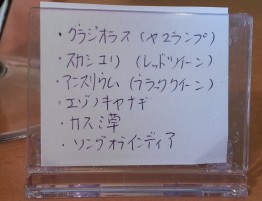 ・グラジオラス（ヤユランプ）
・スカシユリ（レッドツイーン）
・アンスリウム（ブラッククイーン）
・エゾノキヤナギ
・カスミ草
・ソングオブインディア